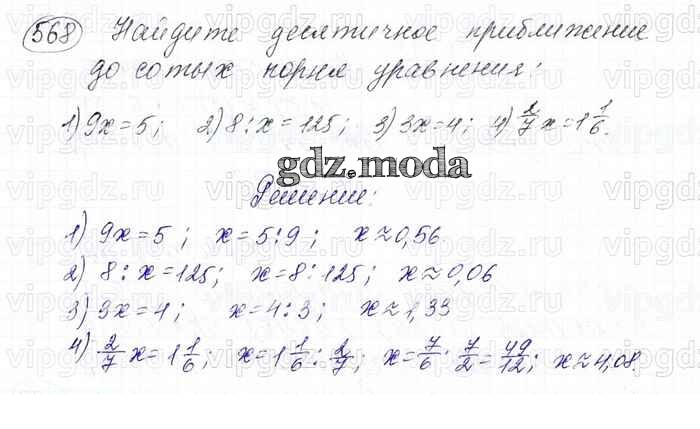 568 Найдите десятичное приближение
до сотых корня уравнения:
1) 9x=5; 2) 8:x=125; 3) 3x=4; 4) 2/7 x=1 1/6.
gdz.moda
Решение:
1) 9x=5; x=5:9; x≈0,56.
2) 8:x=125; x=8:125; x≈0,06
3) 3x=4; x=4:3; x≈1,33
4) 2/7 x=1 1/6; x=1 1/6 : 2/7; x=7/6 · 7/2=49/12; x≈4,08.